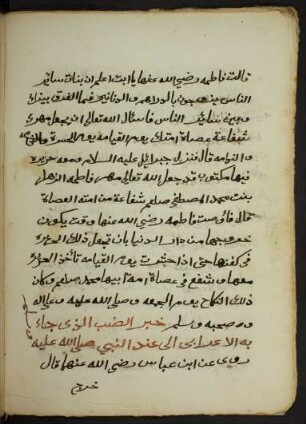 قالت فاطمه رضي الله عنها يا ابت اعلم ان بنات ساير
الناس يتزوجون بالدراهم والدنانير فما الفرق بينك
وبين ساير الناس فاسئال الله تعالى ان يجعل مهري
شفاعة عصاة امتك يوم القيامه يوم الحسرة
والندامه قال فنزل جبرائيل عليه السلام ومعه حريره
فيها مكتوب قد جعل الله تعالى مهر فاطمه الزهرا
بنت محمد المصطفى صلعم شفاعة من امته العصاة
قال فاوصت فاطمه رضي الله عنها وقت يكون
خروجها من دار الدنيا بان تجعل ذلك الحريره
في كفنها حتى اذا حشرت يوم القيامه تاخذ الحريره
معها وتشفع في عصاة امة ابيها محمد صلعم وكان
ذلك النكاح يوم الجمعه وصلى الله عليه وعلى اله
وصحبه وسلم خبر الضب الذي جاء
به الاعرابي الى عند النبي صلى الله عليه
روي عن ابن عباس رضي الله عنها قال
خرج